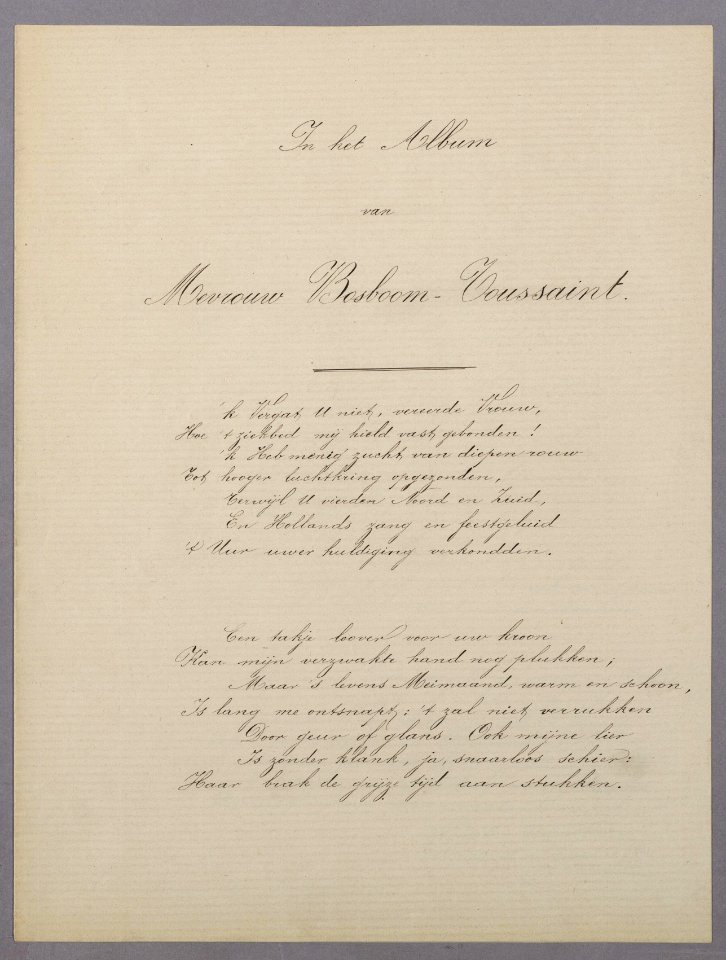 In het Album
van
Mevrouw Bosboom-Toussaint.
'k Vergat U niet, vereerde Vrouw,
Hoe 't ziekbed mij hield vast gebonden!
'k Heb menig zucht van diepen rouw
Tot hooger luchtkring opgezonden,
Terwijl U vierden Noord en Zuid,
En Hollands zang en feestgeluid
't Uur uwer huldiging verkondden.
Een takje loover voor uw kroon
Kan mijn verzwakte hand nog plukken;
Maar 's levens Meimaand, warm en schoon,
Is lang me ontsnapt: 't zal niet verrukken
Door geur of glans. Ook mijne lier
Is zonder klank, ja, snaarloos schier:
Haar brak de grijze tijd aan stukken.